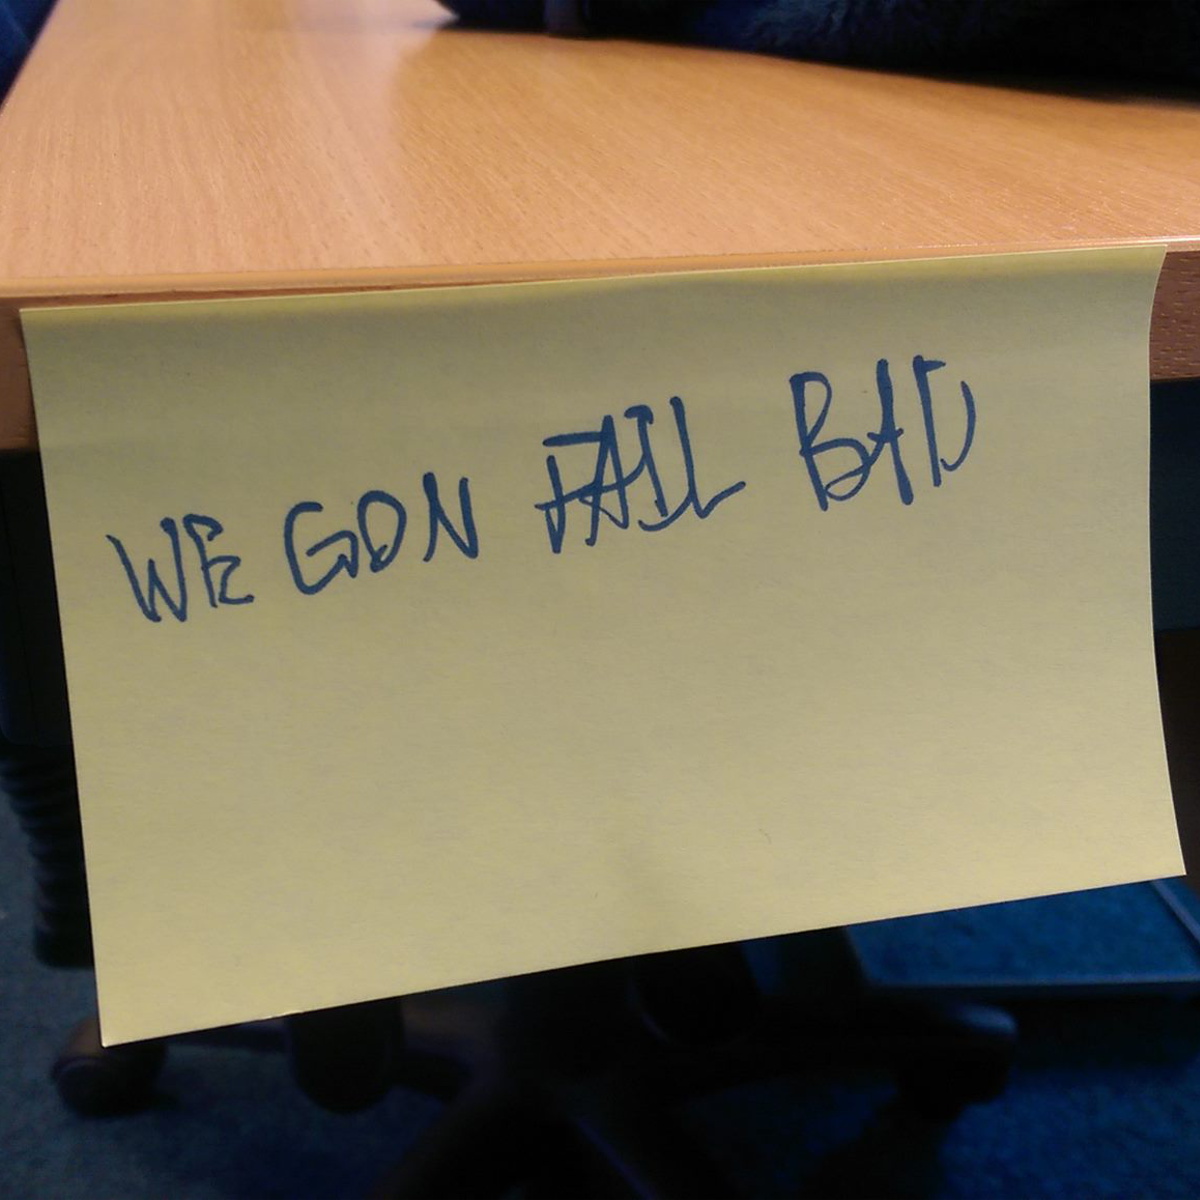 WE GON FAIL BAD